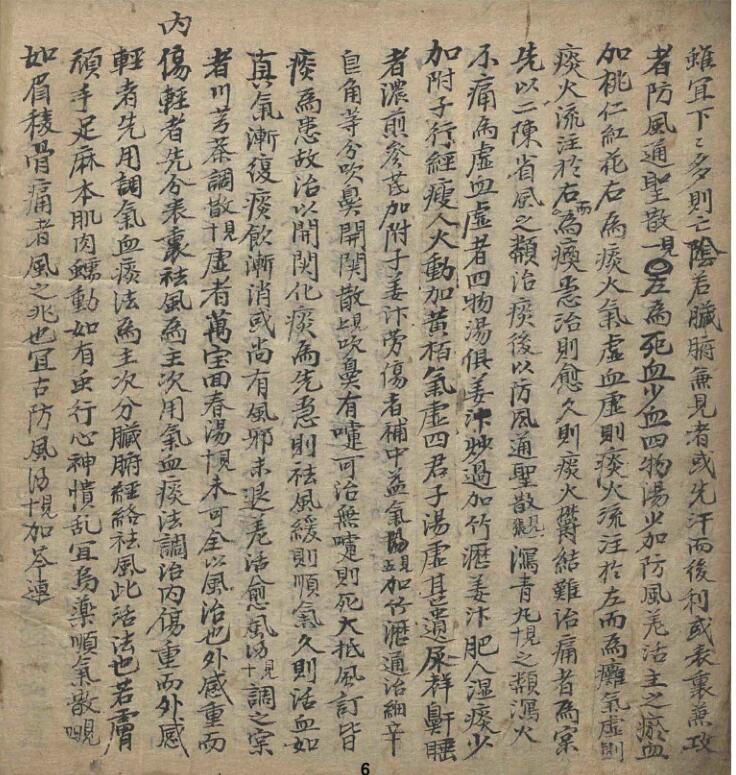 雖宜下〻多則亡陰若臟腑兼見者或先汗而後利或表裏兼攻
者防風通聖散見〇左為死血少血四物湯少加防風羌活主之瘀血
加桃仁紅花右為痰火氣虛血虛則痰火流注於左而為癱氣虛則
痰火流注於右而為瘓急治則愈久則痰火鬱結難治痛者為實
先以二陳省風之類治痰後以防風通聖散瀉青丸見之類瀉火
不痛為虛血虛者四物湯俱姜汁炒過加竹瀝姜汁肥人湿痰少
加附子行經瘦人火動加黃栢氣虛四君子湯虛甚遺尿鼾睡
者濃煎參芪加附子姜汁劳傷者補中益氣湯見加竹瀝通治細辛
皀角等分吹鼻開関散吹鼻有嚏可治無嚏則死大抵風訂皆
痰為患故治以開関化痰為先急則袪風緩則順氣久則活血如
真氣漸復痰飲漸消或尚有風邪未退羌活愈風湯見調之実
者川芎茶調散見虛者萬宝回春湯見未可全以風治也外感重而
內傷輕者先分表裏袪風為主次用氣血痰法調治內傷重而外感
輕者先用調氣血痰法為主次分臟腑經絡袪風此活法也若膚
頑手足麻木肌肉蠕動如有虫行心神憒乱宜烏藥順氣散見
如眉稜骨痛者風之兆也宜古防風湯見加芩連
6